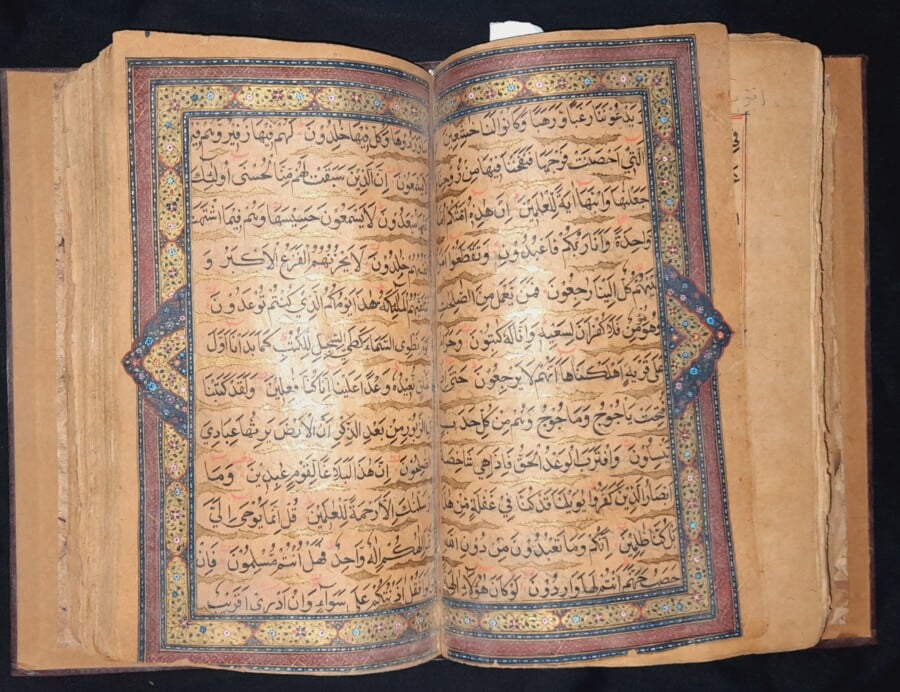 وَيَدْعُونَنَا رَغَبًا وَرَهَبًا وَكَانُوا لَنَا خٰشِعِينَ
وَالَّتِي اَحْصَنَتْ فَرْجَهَا فَنَفَخْنَا فِيهَا مِنْ رُوحِنَا
وَجَعَلْنَاهَا وَابْنَهَا اٰيَةً لِلْعٰلَمِينَ اِنَّ هٰذِهِ اُمَّتُكُمْ اُمَّةً
وَاحِدَةً وَاَنَا رَبُّكُمْ فَاعْبُدُونِ وَتَقَطَّعُوا
بَيْنَهُمْ كُلٌّ اِلَيْنَا رٰجِعُونَ فَمَنْ يَعْمَلْ مِنَ الصّٰلِحٰتِ
وَهُوَ مُؤْمِنٌ فَلَا كُفْرَانَ لِسَعْيِهِ وَاِنَّا لَهُ كٰتِبُونَ وَحَرٰمٌ
عَلٰى قَرْيَةٍ اَهْلَكْنَاهَا اَنَّهُمْ لَا يَرْجِعُونَ حَتّٰى
فُتِحَتْ يَاْجُوجُ وَمَاْجُوجُ وَهُمْ مِنْ كُلِّ حَدَبٍ
يَنْسِلُونَ وَاقْتَرَبَ الْوَعْدُ الْحَقُّ فَاِذَا هِيَ شَاخِصَةٌ
اَبْصَارُ الَّذِينَ كَفَرُوا يٰوَيْلَنَا قَدْ كُنَّا فِي غَفْلَةٍ مِنْ هٰذَا
بَلْ كُنَّا ظٰلِمِينَ اِنَّكُمْ وَمَا تَعْبُدُونَ مِنْ دُونِ اللّٰهِ
حَصَبُ جَهَنَّمَ اَنْتُمْ لَهَا وَارِدُونَ لَوْ كَانَ هٰؤُلَاءِ اٰلِهَةً
وَرَدُوهَا وَكُلٌّ فِيهَا خٰلِدُونَ لَهُمْ فِيهَا زَفِيرٌ وَهُمْ فِيهَا
يَسْمَعُونَ اِنَّ الَّذِينَ سَبَقَتْ لَهُمْ مِنَّا الْحُسْنٰى اُولٰئِكَ
مُبْعَدُونَ لَا يَسْمَعُونَ حَسِيسَهَا وَهُمْ فِيمَا اشْتَهَتْ
اَنْفُسُهُمْ خٰلِدُونَ لَا يَحْزُنُهُمُ الْفَزَعُ الْاَكْبَرُ وَ
تَتَلَقّٰىهُمُ الْمَلٰئِكَةُ هٰذَا يَوْمُكُمُ الَّذِي كُنْتُمْ تُوعَدُونَ
نَطْوِي السَّمَاءَ كَطَيِّ السِّجِلِّ لِلْكُتُبِ كَمَا بَدَاْنَا اَوَّلَ
خَلْقٍ نُعِيدُهُ وَعْدًا عَلَيْنَا اِنَّا كُنَّا فٰعِلِينَ وَلَقَدْ كَتَبْنَا
الزَّبُورِ مِنْ بَعْدِ الذِّكْرِ اَنَّ الْاَرْضَ يَرِثُهَا عِبَادِيَ
الصّٰلِحُونَ اِنَّ فِي هٰذَا لَبَلَاغًا لِقَوْمٍ عٰبِدِينَ وَمَا
اَرْسَلْنٰكَ اِلَّا رَحْمَةً لِلْعٰلَمِينَ قُلْ اِنَّمَا يُوحٰى اِلَيَّ
اِلٰهُكُمْ اِلٰهٌ وَاحِدٌ فَهَلْ اَنْتُمْ مُسْلِمُونَ فَاِنْ
تَوَلَّوْا فَقُلْ اٰذَنْتُكُمْ عَلٰى سَوَاءٍ وَاِنْ اَدْرِي اَقَرِيبٌ